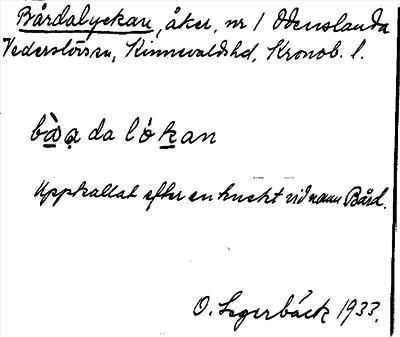 Bårdalyckan, åker, nr 1 Odenslanda
Vederslövs sn, Kinnevaldshd, Kronob. l.
Uppkallat efter en knekt vid namn Bård.
O. Segerbäck 1933.